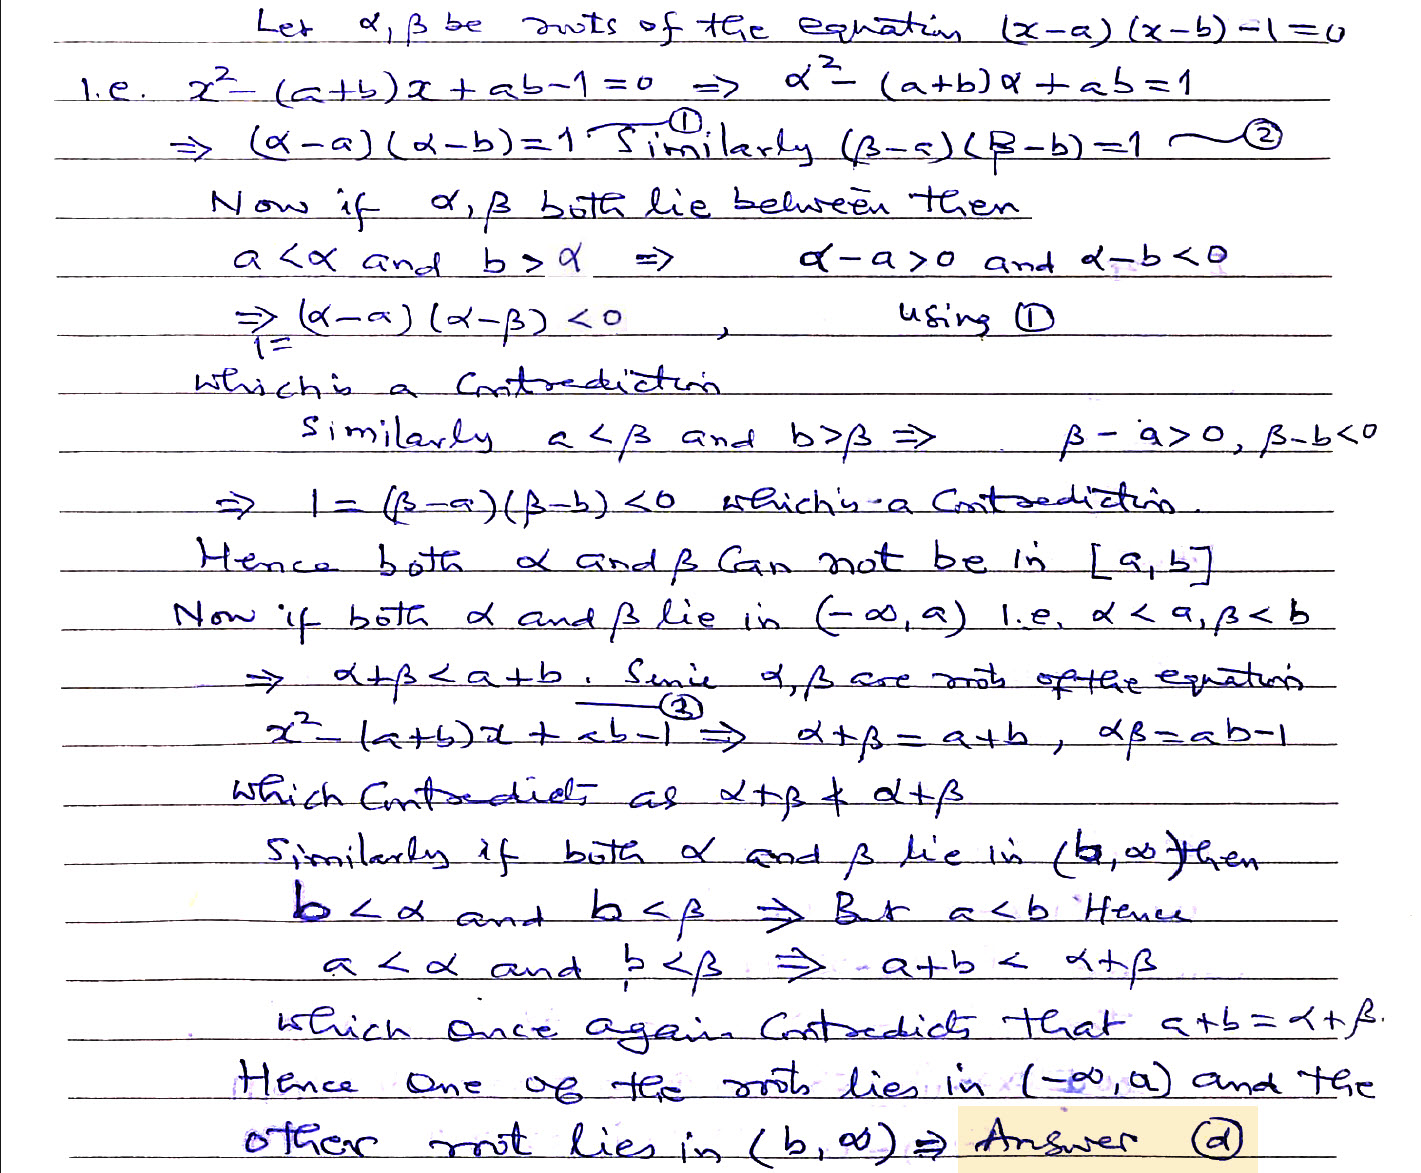 Let α, β be roots of the equation (x-a)(x-b)-1=0
I.e. x²-(a+b)x+ab-1=0 ⇒ α²-(a+b)α+ab=1
⇒ (α-a)(α-b)=1 —① Similarly (β-a)(β-b)=1 —②
Now if α, β both lie between then
a<α and b>α ⇒ α-a>0 and α-b<0
⇒ (α-a)(α-β)<0 , using ①
1=
which is a Contradiction
Similarly a<β and b>β ⇒ β-a>0, β-b<0
⇒ 1=(β-a)(β-b)<0 which is a Contradiction.
Hence both α and β Can not be in [a,b]
Now if both α and β lie in (-∞,a) I.e. α<a, β<b
⇒ α+β<a+b. Since α, β are roots of the equation
—③
x²-(a+b)x+ab-1 ⇒ α+β=a+b, αβ=ab-1
which Contradicts as α+β≮α+β
Similarly if both α and β lie in (b,∞) then
b<α and b<β ⇒ But a<b Hence
a<α and b<β ⇒ a+b<α+β
which once again Contradicts that a+b=α+β.
Hence One of the roots lies in (-∞,a) and the
other root lies in (b,∞) ⇒ Answer ⓓ